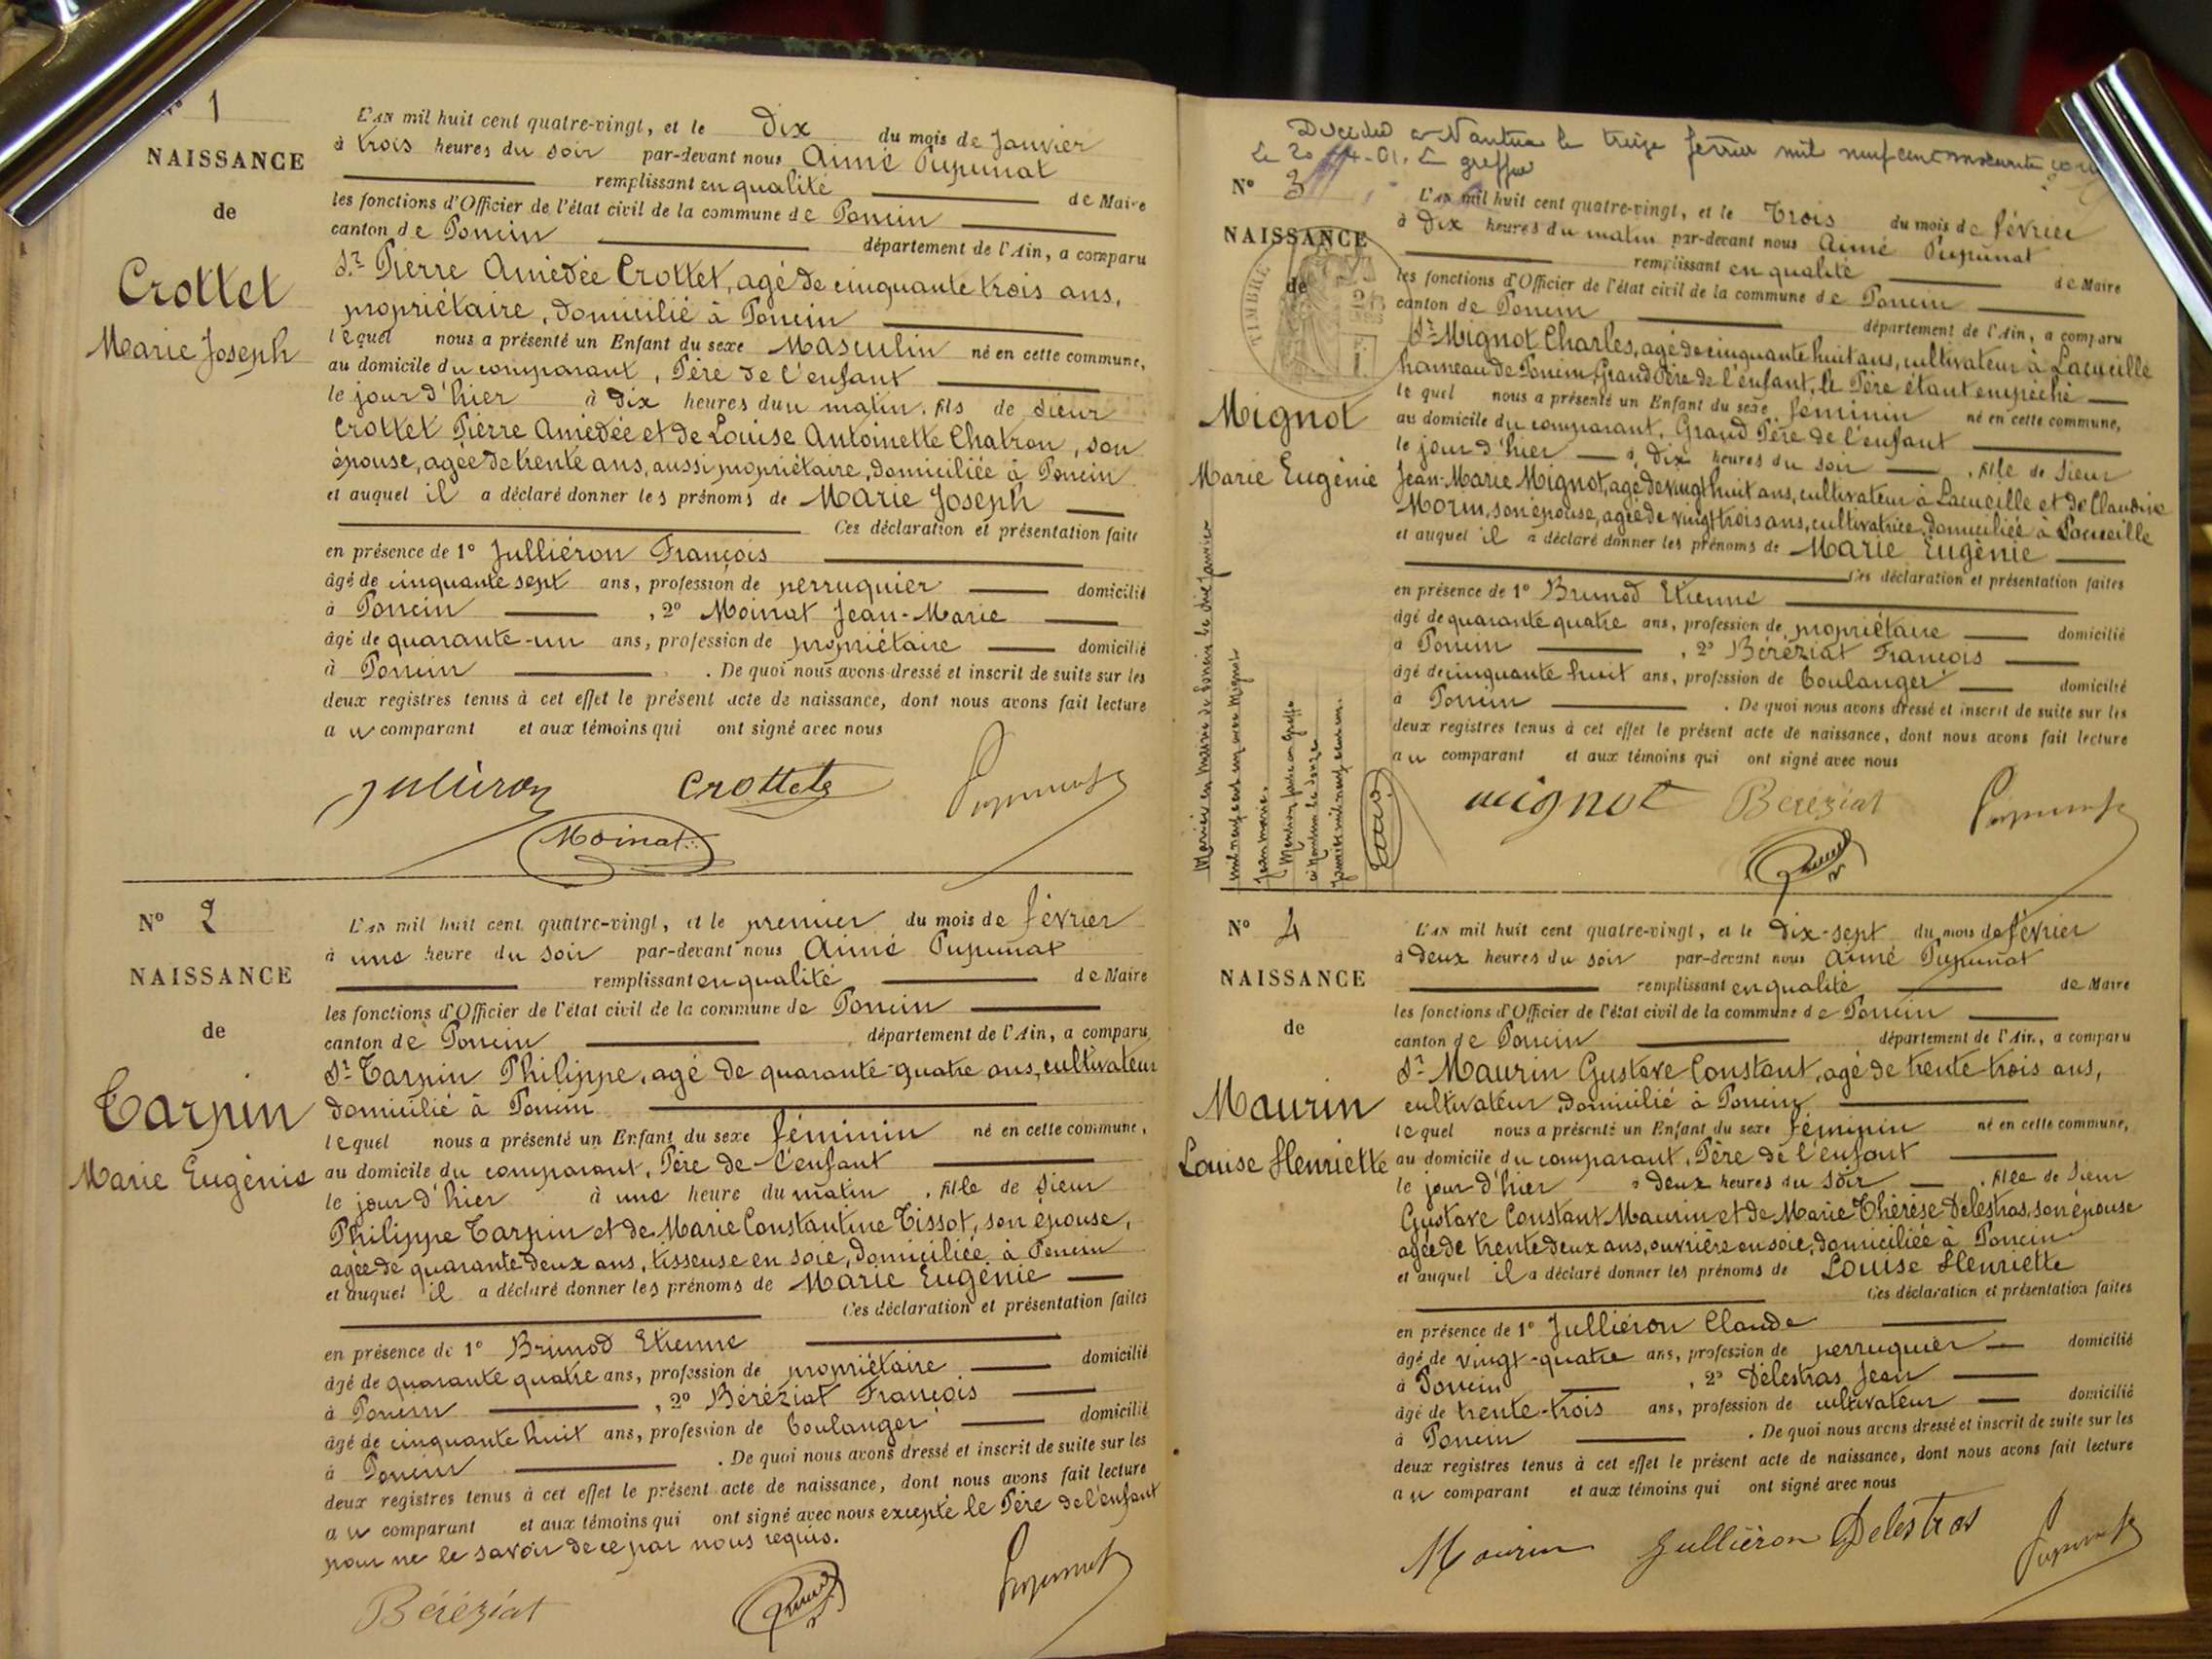 N° 1
NAISSANCE
de
Crottet
Marie Joseph
L'AN mil huit cent quatre-vingt, et le dix du mois de Janvier
à trois heures du soir par-devant nous Aimé Pupunat
remplissant en qualité de Maire
les fonctions d'Officier de l'état civil de la commune de Poncin
canton de Poncin département de l'Ain, a comparu
Sr Pierre Amédée Crottet, agé de cinquante trois ans,
propriétaire, domicilié à Poncin
lequel nous a présenté un Enfant du sexe Masculin né en cette commune,
au domicile du comparant, Père de l'enfant
le jour d'hier à dix heures du matin, fils de Sieur
Crottet Pierre Amédée et de Louise Antoinette Chatron, son
épouse, agée de trente ans, aussi propriétaire, domiciliée à Poncin
et auquel il a déclaré donner les prénoms de Marie Joseph
Ces déclaration et présentation faites
en présence de 1° Julliéron François
âgé de cinquante sept ans, profession de perruquier domicilié
à Poncin, 2° Moinat Jean-Marie
âgé de quarante-un ans, profession de propriétaire domicilié
à Poncin. De quoi nous avons dressé et inscrit de suite sur les
deux registres tenus à cet effet le présent acte de naissance, dont nous avons fait lecture
au comparant et aux témoins qui ont signé avec nous
Juliéron Crottet Pupunat
Moinat
N° 2
NAISSANCE
de
Tarpin
Marie Eugénie
L'AN mil huit cent quatre-vingt, et le premier du mois de février
à une heure du soir par-devant nous Aimé Pupunat
remplissant en qualité de Maire
les fonctions d'Officier de l'état civil de la commune de Poncin
canton de Poncin département de l'Ain, a comparu
Sr Tarpin Philippe, agé de quarante-quatre ans, cultivateur
domicilié à Poncin
lequel nous a présenté un Enfant du sexe féminin né en cette commune,
au domicile du comparant, Père de l'enfant
le jour d'hier à une heure du matin, fille de Sieur
Philippe Tarpin et de Marie Constantine Tissot, son épouse,
agée de quarante deux ans, tisseuse en soie, domiciliée à Poncin
et auquel il a déclaré donner les prénoms de Marie Eugénie
Ces déclaration et présentation faites
en présence de 1° Brunod Etienne
âgé de quarante quatre ans, profession de propriétaire domicilié
à Poncin, 2° Béréziat François
âgé de cinquante huit ans, profession de boulanger domicilié
à Poncin. De quoi nous avons dressé et inscrit de suite sur les
deux registres tenus à cet effet le présent acte de naissance, dont nous avons fait lecture
au comparant et aux témoins qui ont signé avec nous excepté le Père de l'enfant
pour ne le savoir de ce par nous requis.
Béréziat Pupunat
Décédée à Nantua le treize février mil neuf cent
le greffier
N° 3
NAISSANCE
de
TIMBRE
Mignot
Marie Eugénie
L'AN mil huit cent quatre-vingt, et le trois du mois de février
à dix heures du matin par-devant nous Aimé Pupunat
remplissant en qualité de Maire
les fonctions d'Officier de l'état civil de la commune de Poncin
canton de Poncin département de l'Ain, a comparu
Sr Mignot Charles, agé de cinquante huit ans, cultivateur à Lacueille
hameau de Poncin, Grand Père de l'enfant, le Père étant empêché
lequel nous a présenté un Enfant du sexe féminin né en cette commune,
au domicile du comparant, Grand Père de l'enfant
le jour d'hier à dix heures du soir, fille de Sieur
Jean-Marie Mignot, agé de vingt huit ans, cultivateur à Lacueille et de Claudine
Morin, son épouse, agée de vingt trois ans, cultivatrice, domiciliée à Lacueille
et auquel il a déclaré donner les prénoms de Marie Eugénie
Ces déclaration et présentation faites
en présence de 1° Brunod Etienne
âgé de quarante quatre ans, profession de propriétaire domicilié
à Poncin, 2° Béréziat François
âgé de cinquante huit ans, profession de boulanger domicilié
à Poncin. De quoi nous avons dressé et inscrit de suite sur les
deux registres tenus à cet effet le présent acte de naissance, dont nous avons fait lecture
au comparant et aux témoins qui ont signé avec nous
Mignot Béréziat Pupunat
Mariée en mairie de Poncin le dix janvier
mil neuf cent un avec Mignot
Jean Marie.
Mention faite au Greffe
à Nantua le douze
janvier mil neuf cent un.
N° 4
NAISSANCE
de
Maurin
Louise Henriette
L'AN mil huit cent quatre-vingt, et le dix-sept du mois de février
à deux heures du soir par-devant nous Aimé Pupunat
remplissant en qualité de Maire
les fonctions d'Officier de l'état civil de la commune de Poncin
canton de Poncin département de l'Ain, a comparu
Sr Maurin Gustave Constant, agé de trente-trois ans,
cultivateur, domicilié à Poncin
lequel nous a présenté un Enfant du sexe féminin né en cette commune,
au domicile du comparant, Père de l'enfant
le jour d'hier à deux heures du soir, fille de Sieur
Gustave Constant Maurin et de Marie Thérèse Delestras, son épouse
agée de trente deux ans, ouvrière en soie, domiciliée à Poncin
et auquel il a déclaré donner les prénoms de Louise Henriette
Ces déclaration et présentation faites
en présence de 1° Julliéron Claude
âgé de vingt-quatre ans, profession de perruquier domicilié
à Poncin, 2° Delestras Jean
âgé de trente-trois ans, profession de cultivateur domicilié
à Poncin. De quoi nous avons dressé et inscrit de suite sur les
deux registres tenus à cet effet le présent acte de naissance, dont nous avons fait lecture
au comparant et aux témoins qui ont signé avec nous
Maurin Julliéron Delestras Pupunat